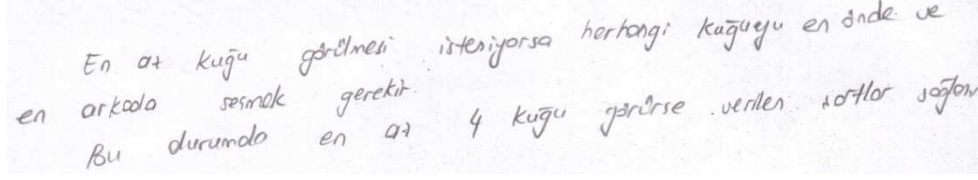 En az kuğu görülmesi isteniyorsa herhangi kuğuyu en önde ve
en arkada seçmek gerekir.
Bu durumda en az 4 kuğu görürse verilen şartlar sağlan